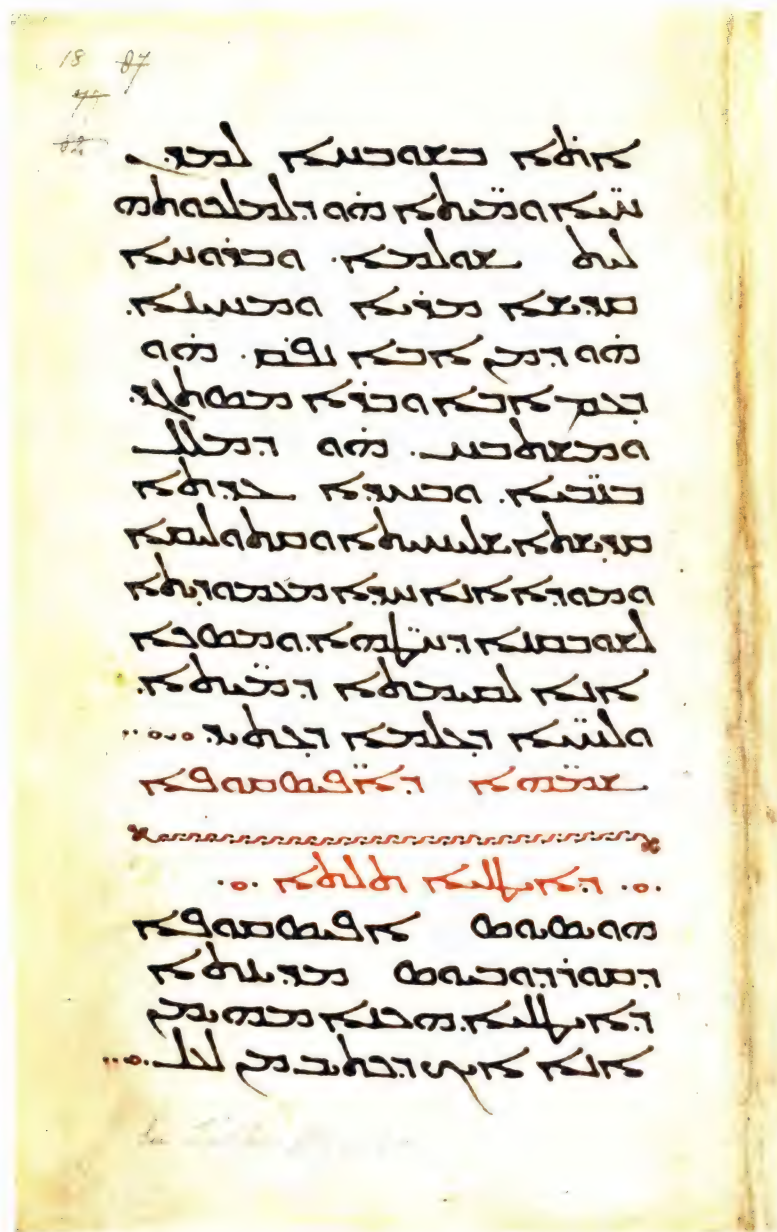 18 87
77
82
ܐܬܐ ܒܫܘܒܚܐ ܠܡܕܢ.
ܚܝ̈ܐ ܘܡܝ̈ܬܐ ܗ̇ܘ ܕܠܡܠܟܘܬܗ
ܠܝܬ ܫܘܠܡܐ. ܘܒܪܘܚܐ
ܩܕܝܫܐ ܡܪܝܐ ܘܡܚܝܢܐ.
ܗ̇ܘ ܕܡܢ ܐܒܐ ܢܦܩ. ܗ̇ܘ
ܕܥܡ ܐܒܐ ܘܒܪܐ ܡܣܬܓܕ.
ܘܡܫܬܒܚ. ܗ̇ܘ ܕܡܠܠ
ܒܢܒ̈ܝܐ. ܘܒܚܕܐ ܥܕܬܐ
ܩܕܝܫܬܐ ܫܠܝܚܝܬܐ ܘܩܬܘܠܝܩܐ
ܘܡܘܕܐ ܐܢܐ ܚܕܐ ܡܥܡܘܕܝܬܐ
ܠܫܘܒܩܢܐ ܕܚܛܗ̈ܐ. ܘܡܣܟܐ
ܐܢܐ ܠܩܝܡܬܐ ܕܡܝ̈ܬܐ.
ܘܠܚܝ̈ܐ ܕܥܠܡܐ ܕܥܬܝܕ.
ܫܡܗ̈ܐ ܕܐܦܣܩܘܦ̈ܐ
ܕܐܝܛܠܝܐ ܬܠܬܐ
ܗܘܣܝܘܣ ܐܦܣܩܘܦܐ
ܕܩܘܪܕܘܒܘܣ ܡܕܝܢܬܐ
ܕܐܝܛܠܝܐ. ܗܟܢܐ ܡܗܝܡܢ
ܐܢܐ ܐܝܟ ܕܟܬܝܒ ܡܢ ܠܥܠ.